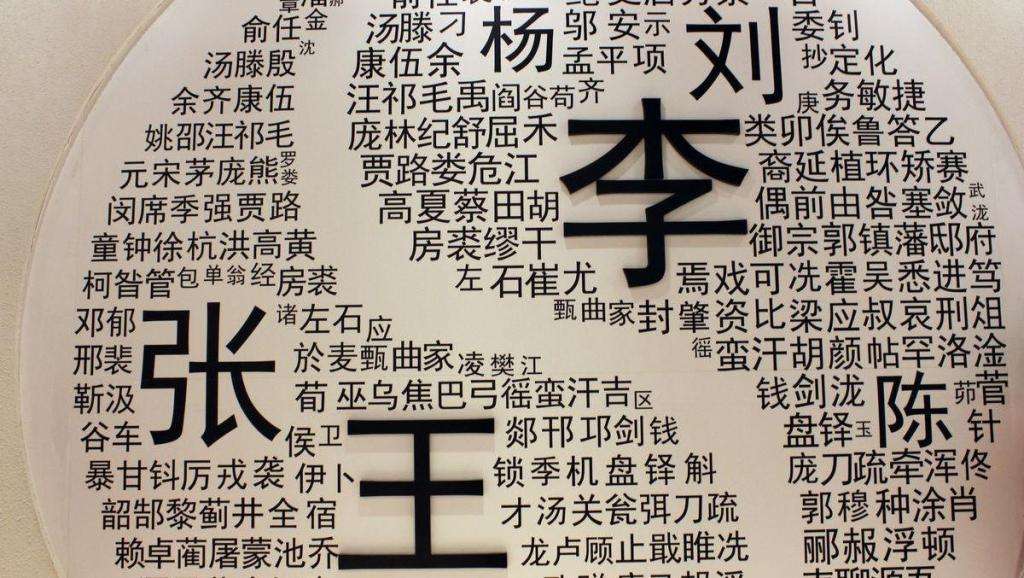 俞任金
汤滕刁
邬安示
委钊
汤滕殷沈
康伍余
杨
孟平项
刘
抄定化
余齐康伍
汪祁毛禹阎谷荀齐
庚务敏捷
姚邵汪祁毛
庞林纪舒屈禾
李
类卯俟鲁答乙
元宋茅庞熊罗娄
贾路娄危江
裔延植环矫赛
闵席季强贾路
高夏蔡田胡
偶前由昝塞敛武泷
童钟徐杭洪高黄
房裘缪干
御宗郭镇藩邸府
柯昝管包单翁经房裘
左石崔尤
焉戏可冼霍吴悉进笃
邓郁
张
诸左石应
甄曲家封肇资比梁应叔哀刑俎
邢裴
於麦甄曲家凌樊江
徭蛮汗胡颜帖罕洛淦
靳汲
荀巫乌焦巴弓徭蛮汗吉区
钱剑泷
陈
茆菅
谷车
侯卫
王
郯邗邛剑钱
盘铎玉
针
暴甘钭厉戎袭伊卜
锁季机盘铎斛
庞刀疏牵浑佟
韶郜黎蓟井全宿
才汤关瓮弭刀疏
郭穆种涂肖
赖卓蔺屠蒙池乔
龙卢顾止戢睢冼
郦郝浮顿